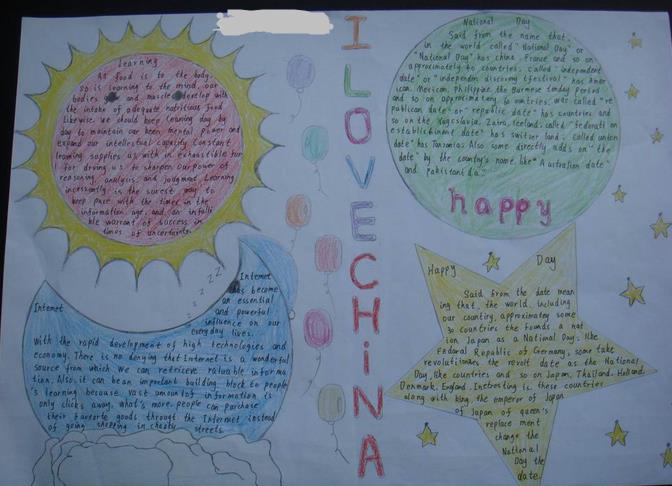 Learning
As food is to the body,
so is learning to the mind. our
bodies and muscle develop with
the intake of adequate nutritious food
likewise. we should keep learning day by
day to maintain our keen mental power and
expand our intellectual capacity. Constant
learning supplies us with in exhaustible
for driving us to sharpen our power of
reasoning analysis and judgment Learning
incessantly is the surest way to
keep pace with the times in the
information age. and an infalli
ble warrant of success in
times of uncertainty.
Internet
Internet
has become
an essential
and powerful
influence on our
everyday lives.
With the rapid development of high technologies and
economy. There is no denying that Internet is a wonderful
source from which we can retrieve valuable informa
tion. Also, it can be an important building block to people
's learning because vast amount of information is
only clicks away. what's more people can purchase
their favorite goods through the Internet instead
of going shopping in streets.
zzz
I LOVE CHINA
National Day
Said from the name that.
in the world called "National Day" or
"National Day" has china. France and so on
approximately to countries. Called "independent
date" or "independent festival" has
Mexican, Philippine, the Burmese
and so on approximately countries. was called "re
publican date" or "republic date" has countries and
so on the Yugoslavia, Zaire, Iceland. called "federation
establishment date" has Switzerland. Called
date" has Tanzania. Also some directly adds on "the
date" by the country's name like "Australian date"
and pakistani da".
happy
Happy Day
Said from the date mean
ing that, the world, including
our country, approximately some
30 countries the founds a nat
ion Japan as a National Day. like
Federal Republic of Germany, some take
revolutionaries the revolt date as the National
Day, like countries and so on Japan, Thailand. Holland.
Denmark. England. Inetresting is these countries
along with king, the emperor of Japan
of Japan of queen's
replace ment
change the
National
Day the
date.